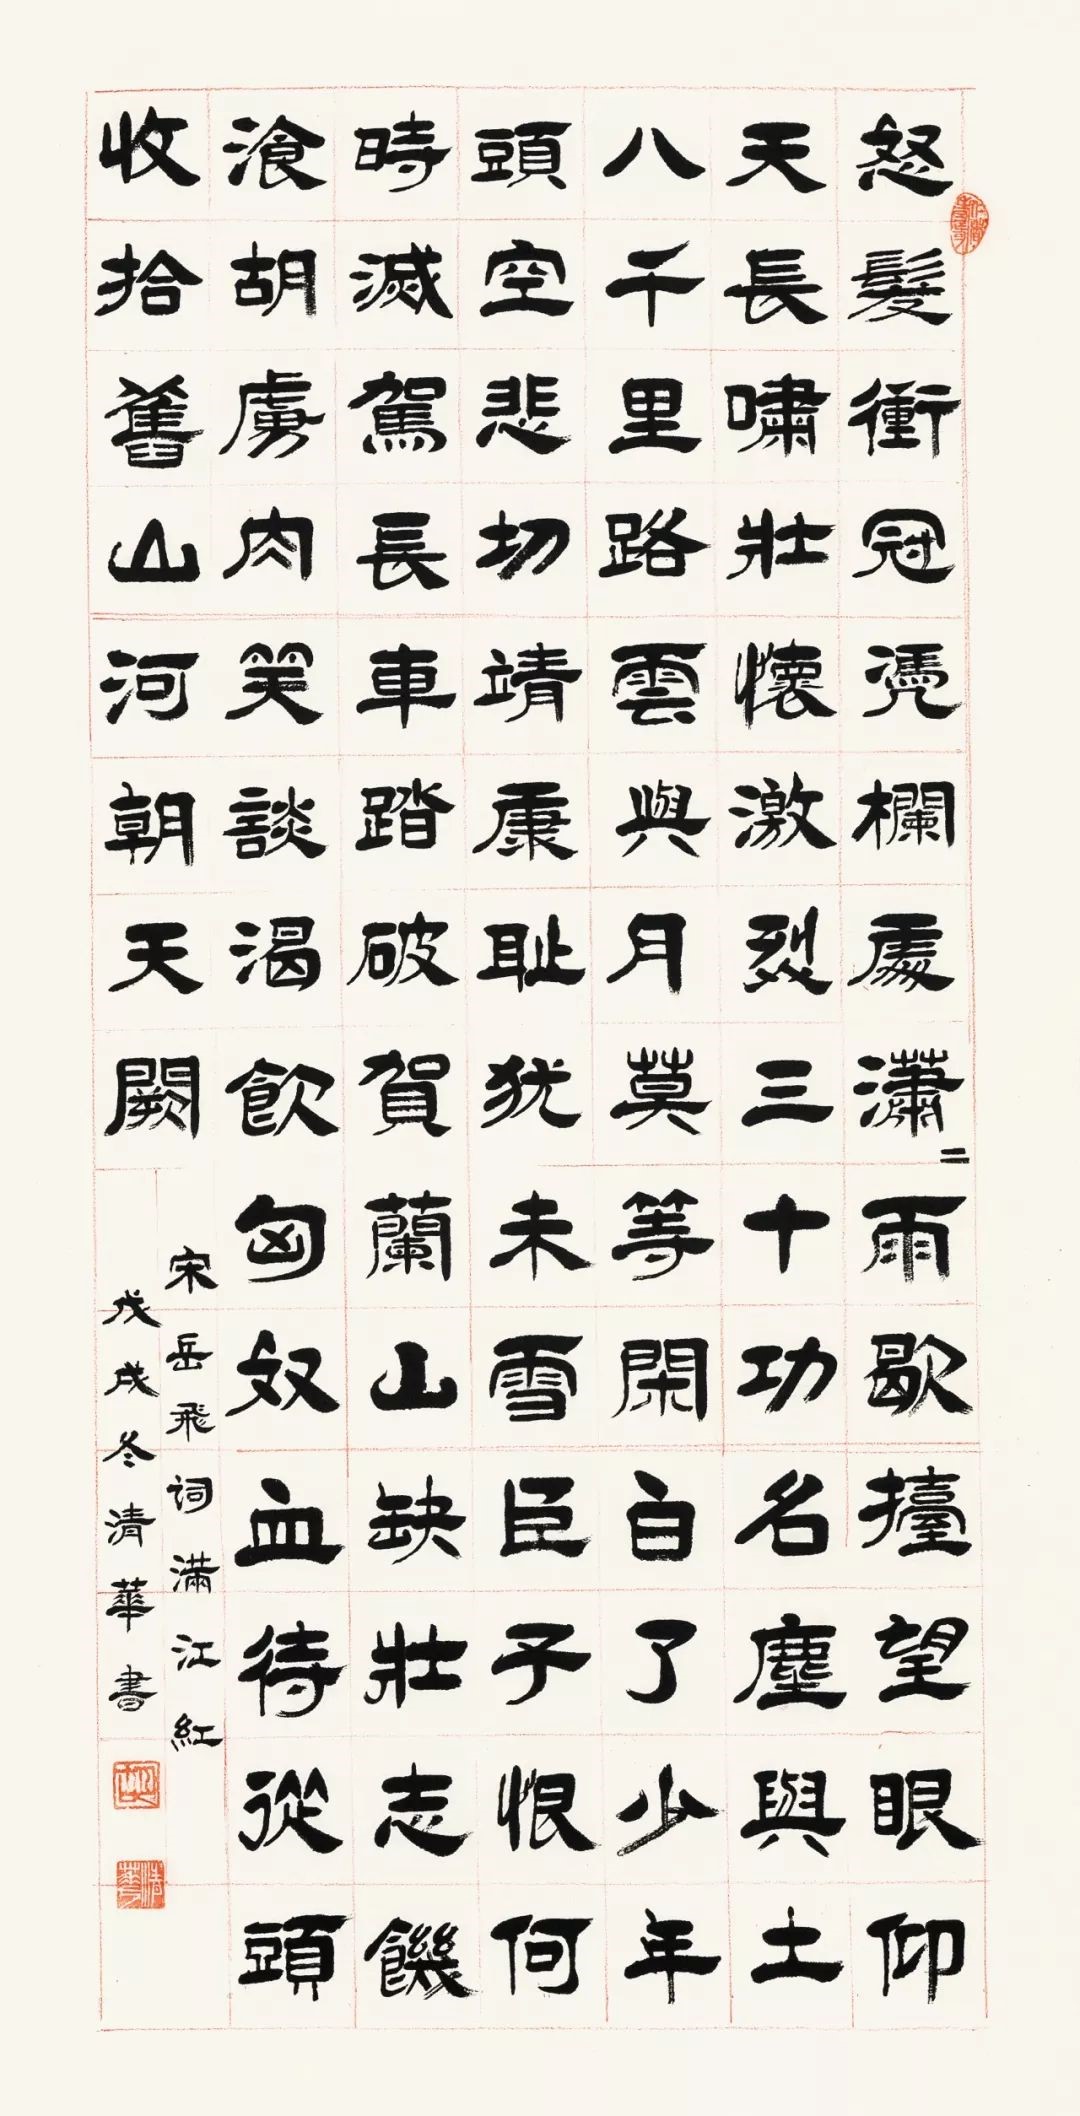 怒髮衝冠憑欄處瀟二雨歇擡望眼仰
天長嘯壯懷激烈三十功名塵與土
八千里路雲與月莫等閑白了少年
頭空悲切靖康恥猶未雪臣子恨何
時滅駕長車踏破賀蘭山缺壯志饑
飡胡虜肉笑談渴飲匈奴血待從頭
收拾舊山河朝天闕
宋岳飛詞滿江紅
戊戌冬清華書
清華